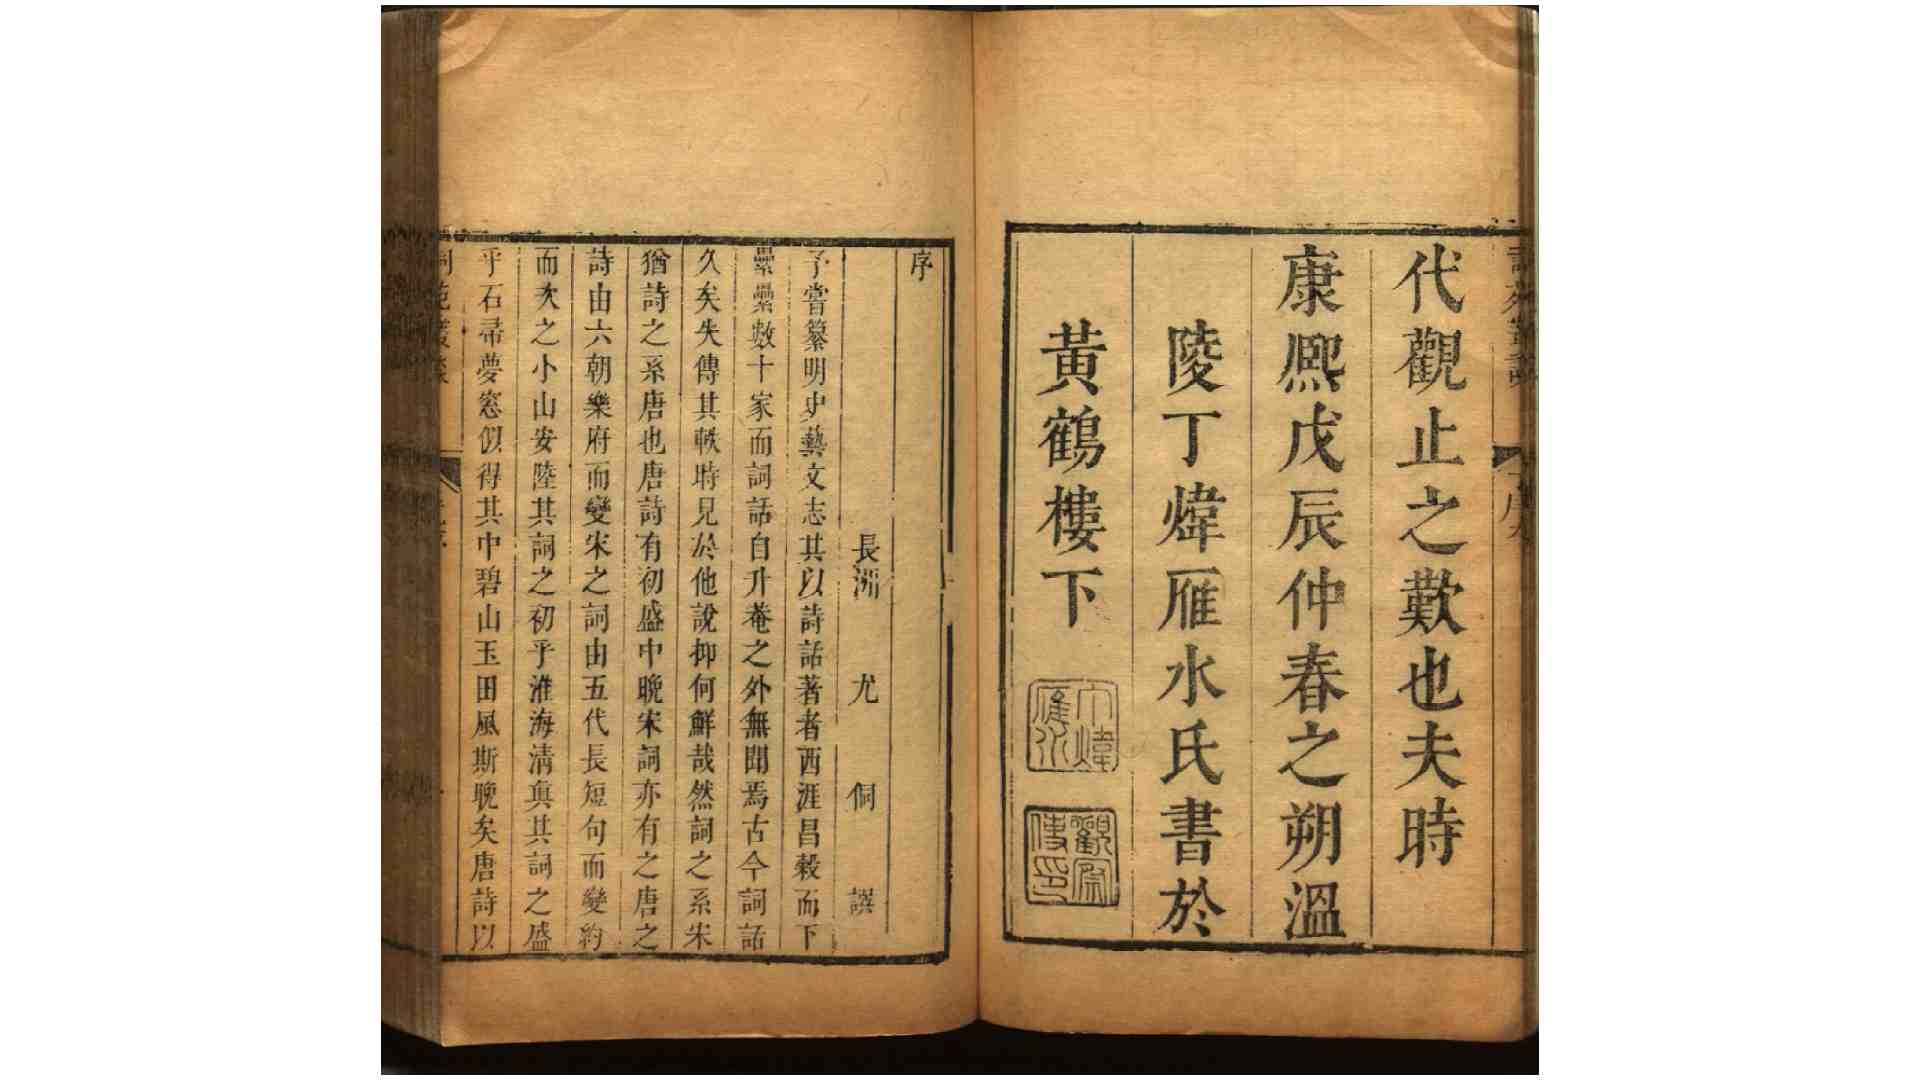 代觀止之歎也夫時
康熙戊辰仲春之朔溫
陵丁煒雁水氏書於
黃鶴樓下
丁煒雁水
觀察使印
序
長洲 尤 侗 譔
予嘗纂明史藝文志其以詩話著者西涯昌榖而下
纍纍數十家而詞話自升菴之外無聞焉古今詞話
久矣失傳其軼時見於他說抑何鮮哉然詞之系宋
猶詩之系唐也唐詩有初盛中晚宋詞亦有之唐之
詩由六朝樂府而變宋之詞由五代長短句而變約
而次之小山安陸其詞之初乎淮海清眞其詞之盛
乎石帚夢窓似得其中碧山玉田風斯晚矣唐詩以
詞苑叢談